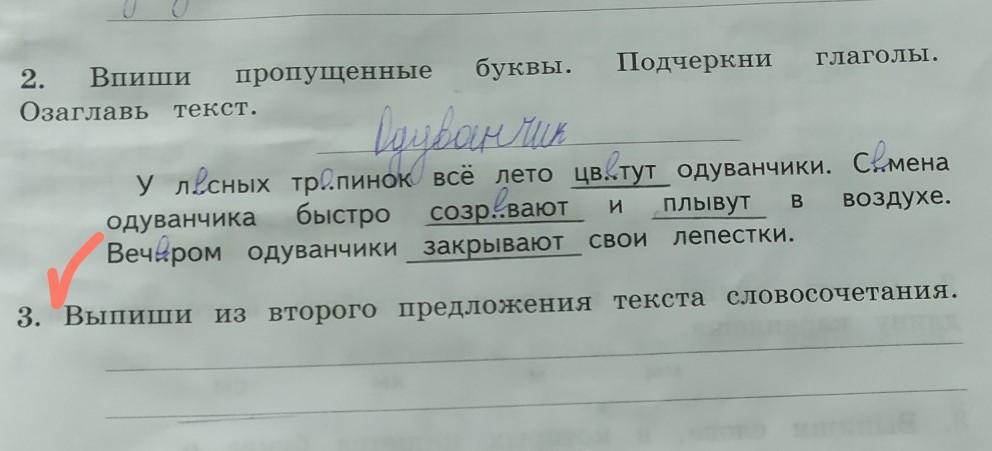 2. Впиши пропущенные буквы. Подчеркни глаголы.
Озаглавь текст.
Одуванчик
У лесных тропинок всё лето цветут одуванчики. Семена
одуванчика быстро созревают и плывут в воздухе.
Вечером одуванчики закрывают свои лепестки.
3. Выпиши из второго предложения текста словосочетания.